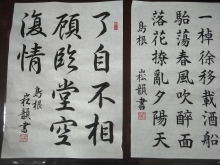 一棹徐移載酒船
駘蕩春風吹醉面
落花撩亂夕陽天
島根 崧韻書
了自不相
顧臨堂空
復情
島根 崧韻書